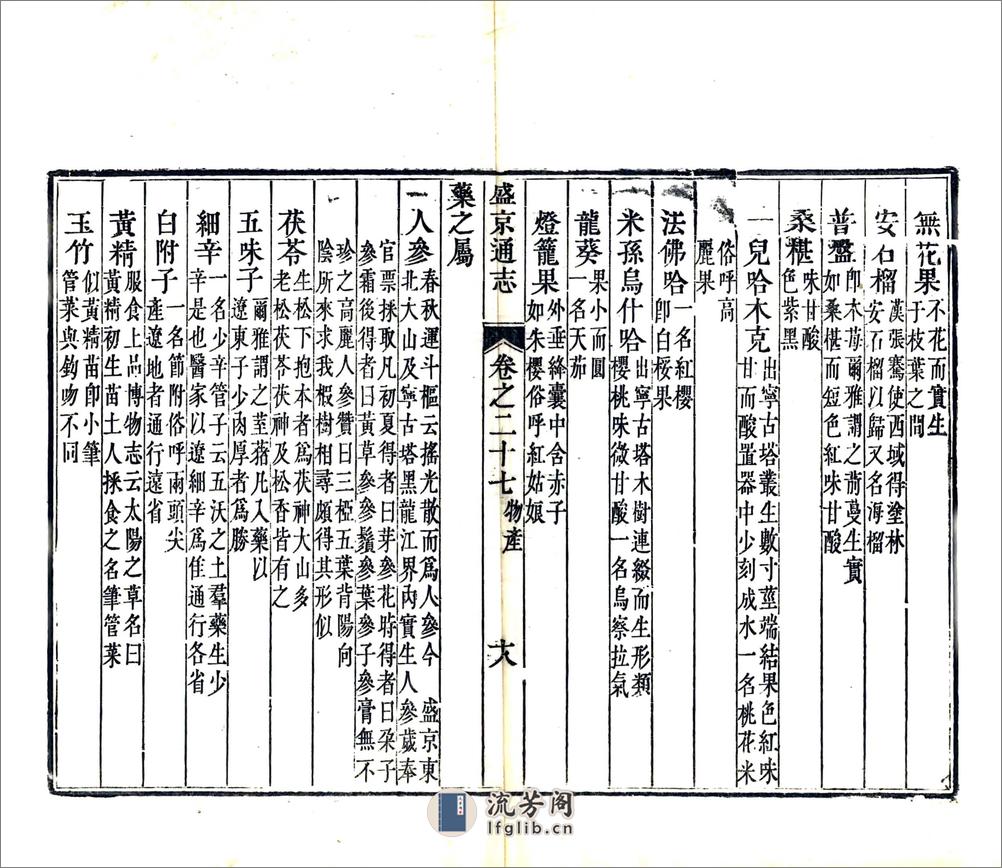 無花果不花而實生
于枝葉之間
安石榴漢張騫使西域得塗林
安石榴以歸又名海榴
普盤卽木莓爾雅謂之葥蔓生實
如桑椹而短色紅味甘酸
桑椹味甘酸
色紫黑
一兒哈木克出寧古塔叢生數寸莖端結果色紅味
甘而酸置器中少刻成水一名桃花米
俗呼高
麗果
法佛哈一名紅櫻
卽白桵果
米孫烏什哈出寧古塔木樹連綴而生形類
櫻桃味微甘酸一名烏察拉氣
龍葵果小而圓
一名天茄
燈籠果外垂絳囊中含赤子
如朱櫻俗呼紅姑娘
盛京通志
卷之二十七
物產
大
藥之屬
一人參春秋運斗樞云搖光散而爲人參今 盛京東
北大山及寧古塔黑龍江界內實生人參歲奉
官票採取凡初夏得者曰芽參花時得者曰朶子
參霜後得者曰黃草參參鬚參葉參子參膏無不
珍之高麗人參贊曰三椏五葉背陽向
陰所來求我椵樹相尋頗得其形似
茯苓生松下抱本者爲茯神大山多
老松茯苓茯神及松香皆有之
五味子爾雅謂之荎蕏凡入藥以
遼東子少肉厚者爲勝
細辛一名少辛管子云五沃之土羣藥生少
辛是也醫家以遼細辛爲佳通行各省
白附子一名節附俗呼兩頭尖
產遼地者通行遠省
黃精服食上品博物志云太陽之草名曰
黃精初生苗土人採食之名筆管菜
玉竹似黃精苗卽小筆
管菜與鈎吻不同
流芳阁
lfglib.cn